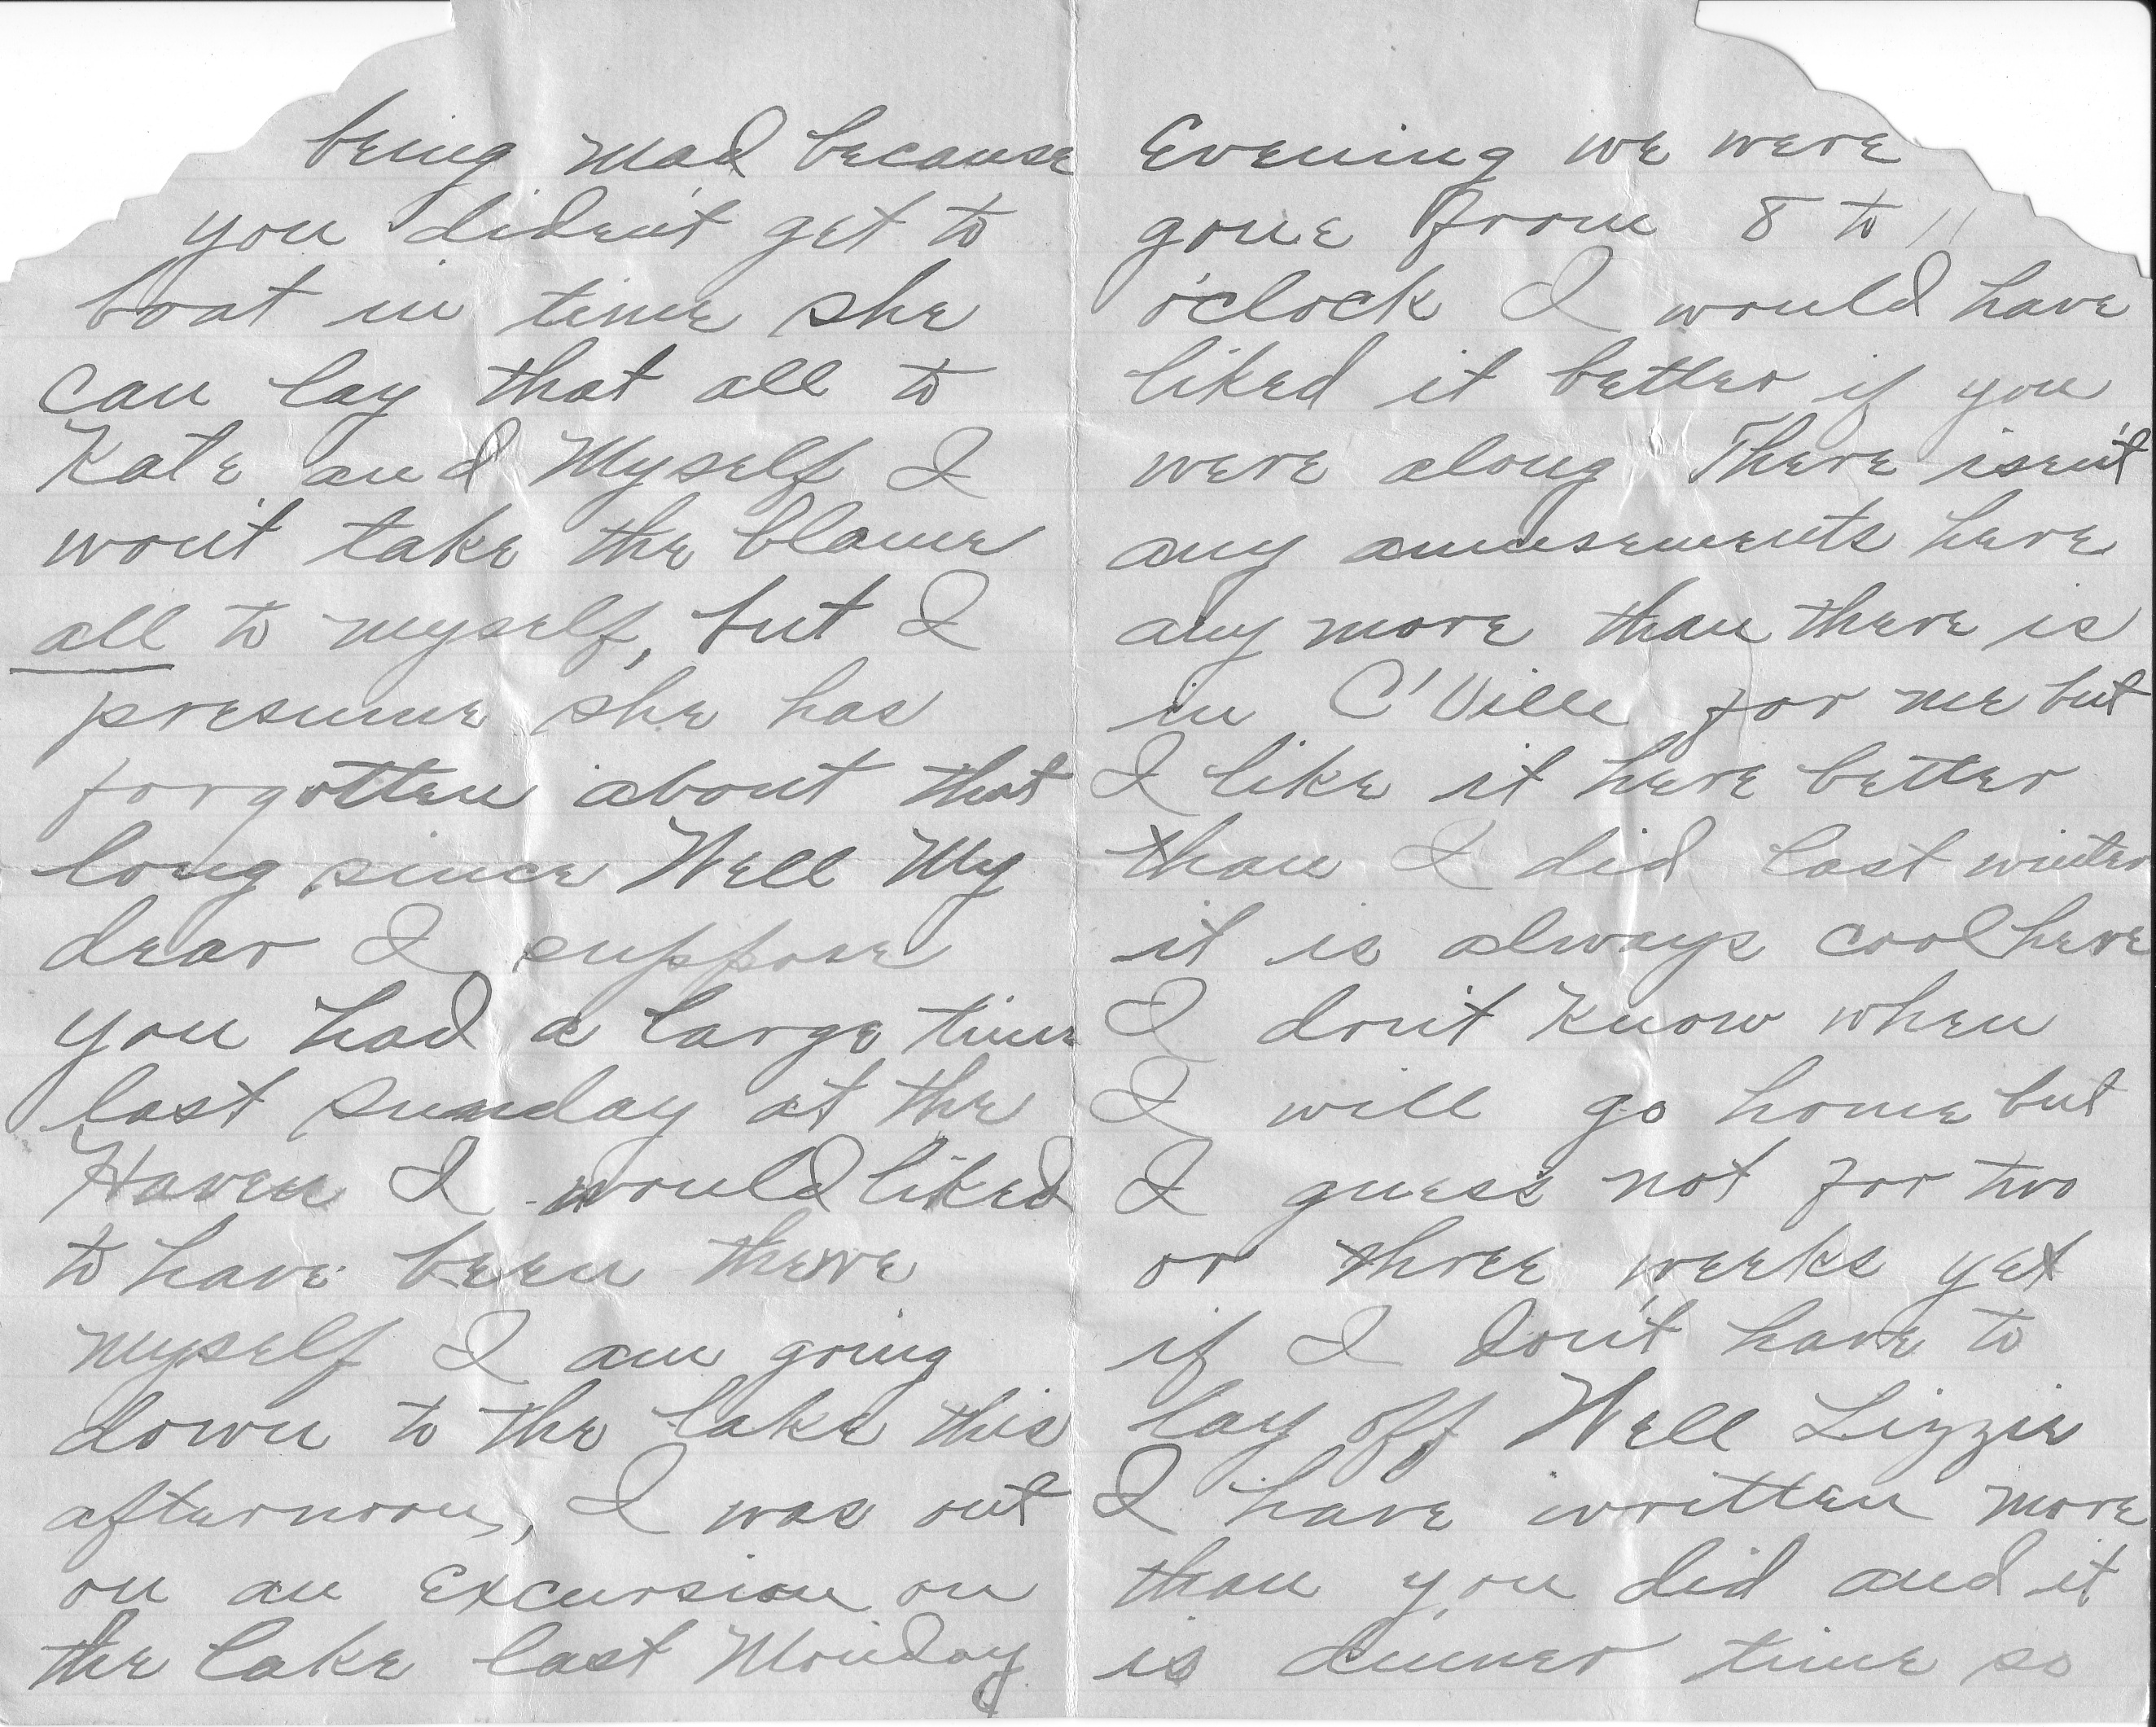 being mad because
you diden't get to
boat in time she
can lay that all to
Kate and Myself I
won't take the blame
all to myself, but I
presume she has
forgotten about that
long since Well My
dear I suppose
you had a large time
last Sunday at the
Haven I would liked
to have been there
myself I am going
down to the lake this
afternoon, I was out
on an Excursion on
the lake last Monday
Evening we were
gone from 8 to 11
o'clock I would have
liked it better if you
were along There isen't
any amusements here
any more than there is
in C'Ville for me but
I like it here better
than I did last winter
it is always cool here
I don't know when
I will go home but
I guess not for two
or three weeks yet
if I don't have to
lay off Well Lizzie
I have written more
than you did and it
is dinner time so